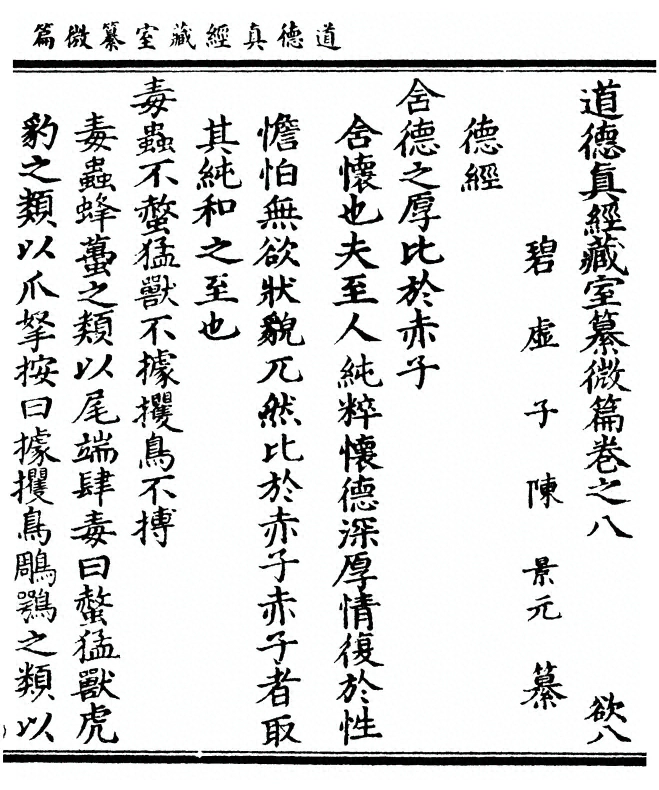 道德真經藏室纂微篇
道德真經藏室纂微篇卷之八 欲八
碧虛子陳景元纂
德經
含德之厚比於赤子
含懷也夫至人純粹懷德深厚情復於性
憺怕無欲狀貌兀然比於赤子赤子者取
其純和之至也
毒蟲不螫猛獸不據攫鳥不搏
毒蟲蜂蠆之類以尾端肆毒曰螫猛獸虎
豹之類以爪拏按曰據攫鳥鵰鶚之類以